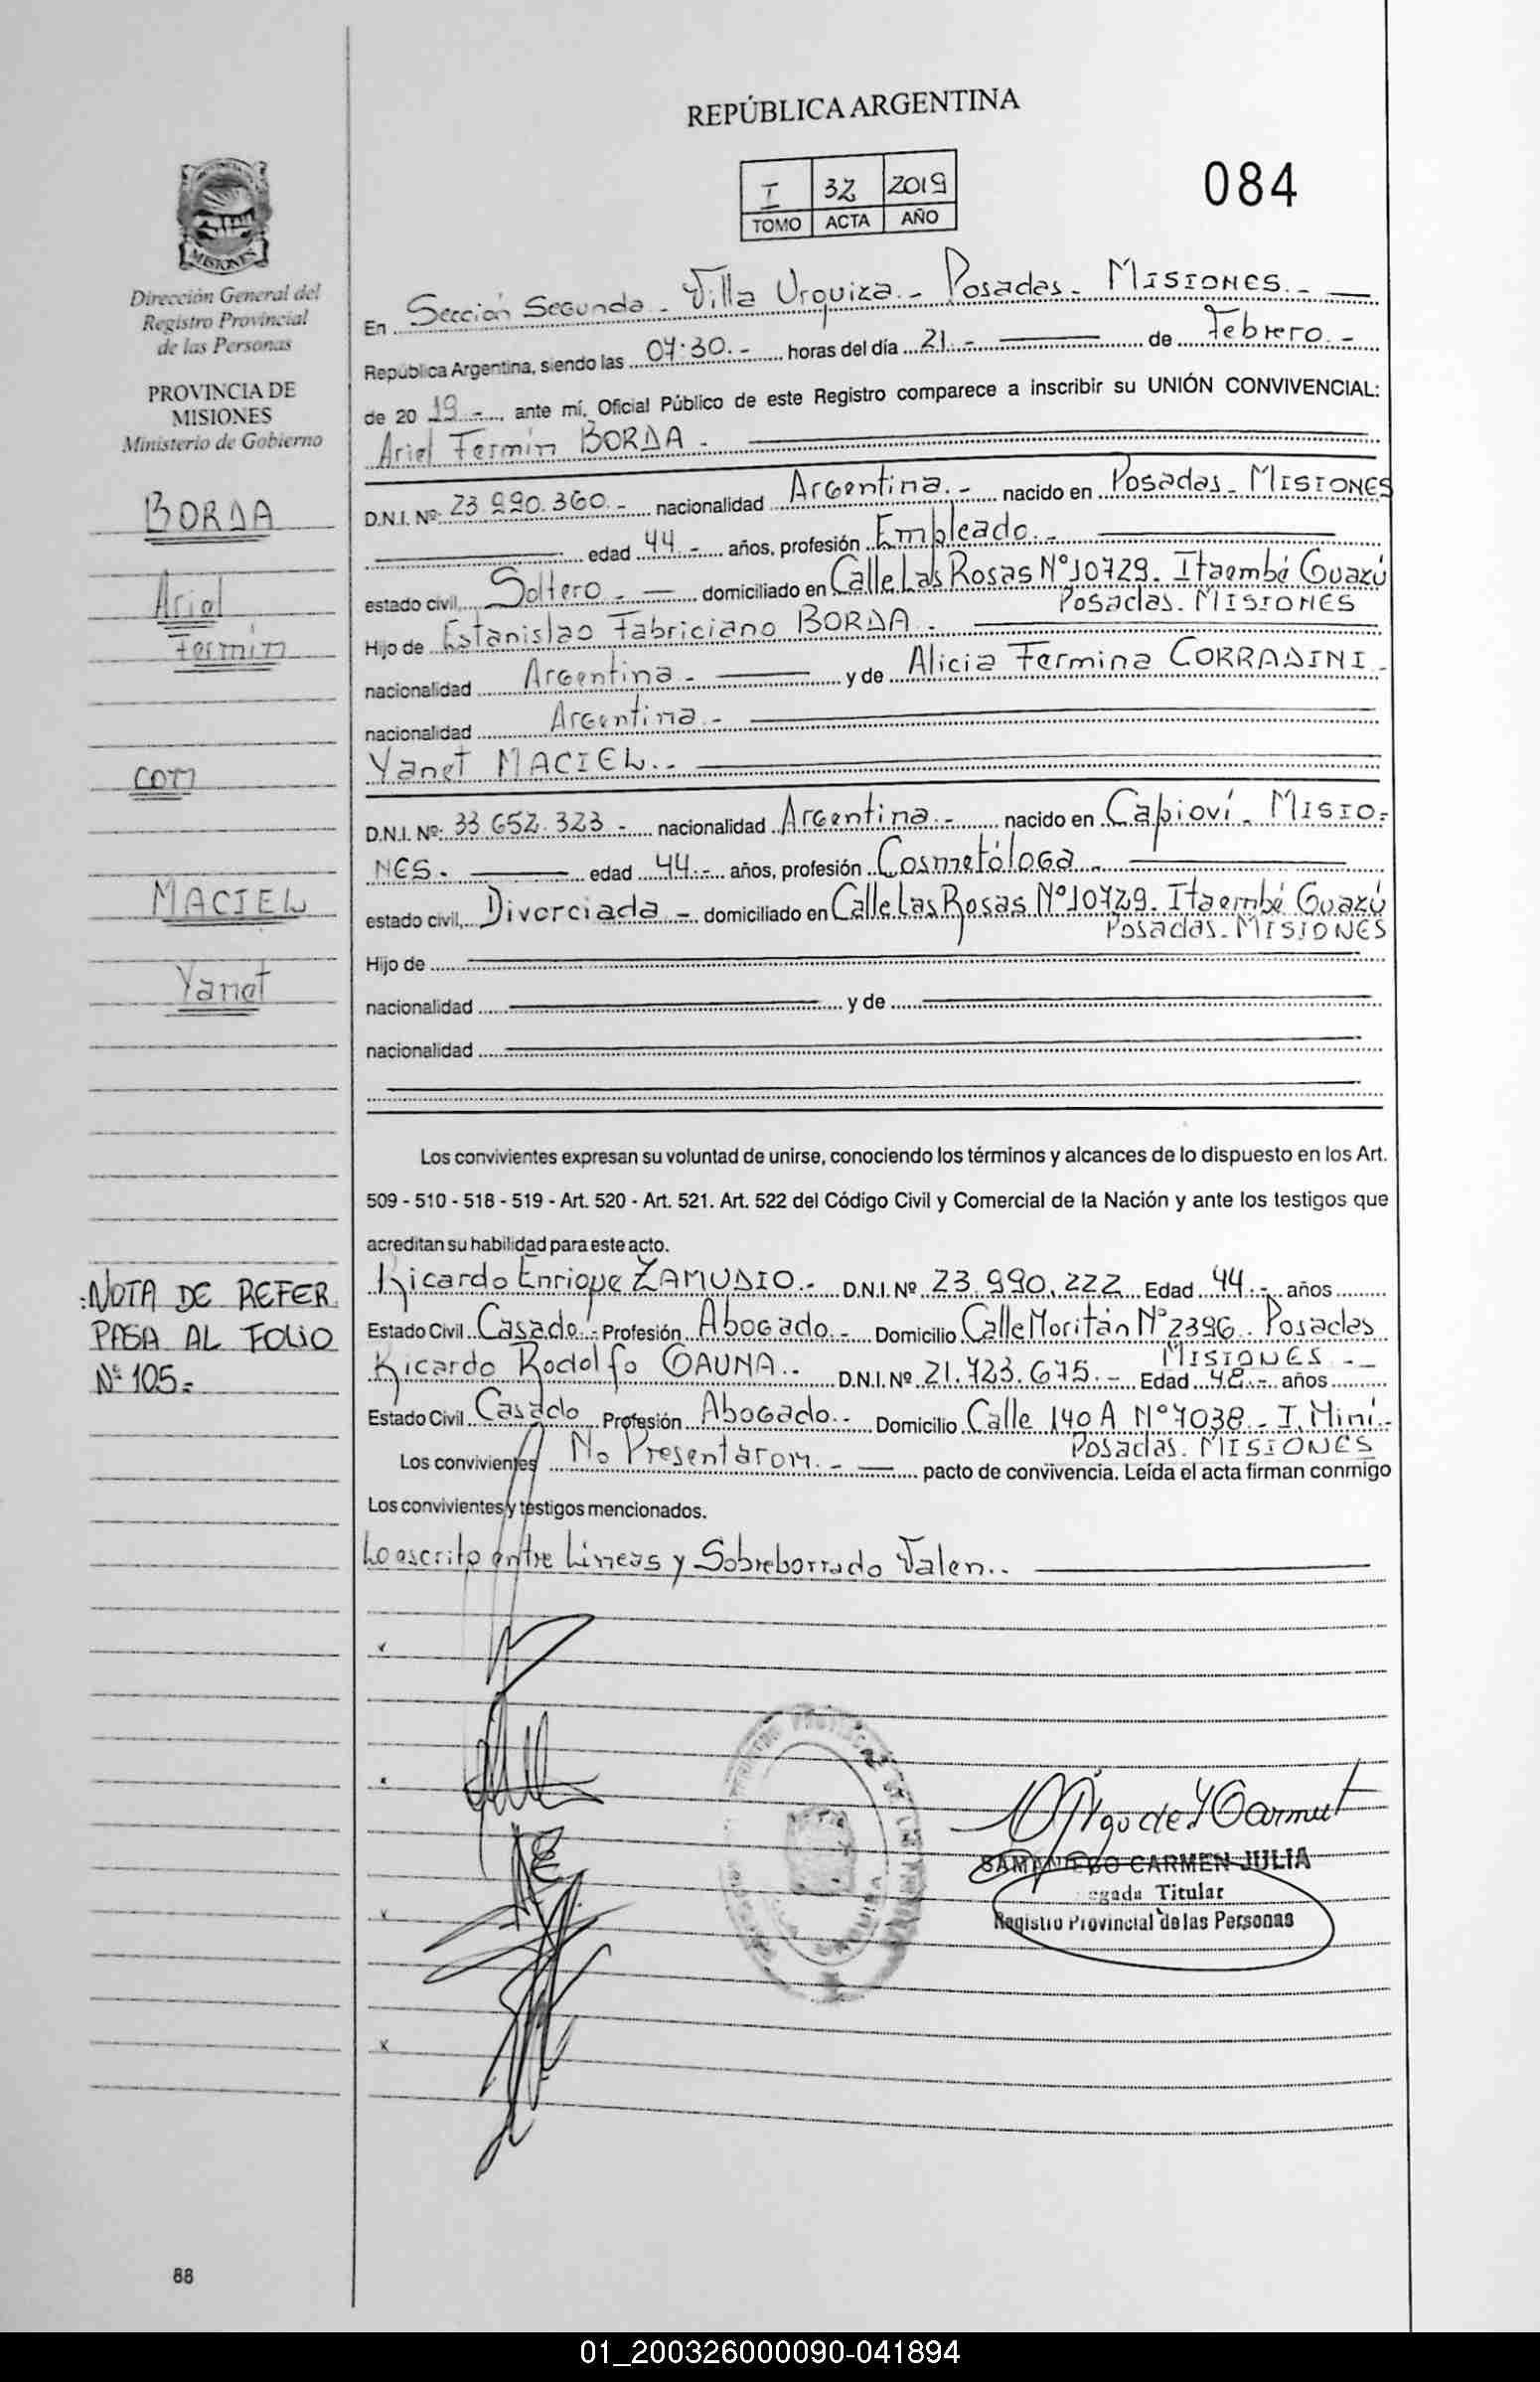 REPÚBLICA ARGENTINA
I 32 2019
TOMO ACTA AÑO
084
MISIONES
Dirección General del
Registro Provincial
de las Personas
PROVINCIA DE
MISIONES
Ministerio de Gobierno
BORDA
Ariel
Fermín
CON
MACIEL
Yanet
NOTA DE REFER
PASA AL FOLIO
Nº 105.-
88
En Sección Segunda - Villa Urquiza.- Posadas - MISIONES.-
República Argentina, siendo las 07:30.- horas del día 21.- de Febrero.-
de 20 19.-, ante mí, Oficial Público de este Registro comparece a inscribir su UNIÓN CONVIVENCIAL:
Ariel Fermín BORDA -
D.N.I. Nº: 23.990.360.- nacionalidad Argentina.- nacido en Posadas - MISIONES
edad 44.- años, profesión Empleado.-
estado civil, Soltero.- domiciliado en Calle Las Rosas Nº 10729. Itaembé Guazú
Posadas. MISIONES
Hijo de Estanislao Fabriciano BORDA -
nacionalidad Argentina - y de Alicia Fermina CORRADINI -
nacionalidad Argentina -
Yanet MACIEL.-
D.N.I. Nº: 33.652.323 - nacionalidad Argentina.- nacido en Capioví - MISIO-
NES. edad 44.- años, profesión Cosmetóloga.-
estado civil, Divorciada - domiciliado en Calle Las Rosas Nº 10729. Itaembé Guazú
Posadas - MISIONES
Hijo de
nacionalidad y de
nacionalidad
Los convivientes expresan su voluntad de unirse, conociendo los términos y alcances de lo dispuesto en los Art.
509 - 510 - 518 - 519 - Art. 520 - Art. 521. Art. 522 del Código Civil y Comercial de la Nación y ante los testigos que
acreditan su habilidad para este acto.
Ricardo Enrique ZAMUDIO.- D.N.I. Nº 23.990.222 Edad 44.- años
Estado Civil Casado Profesión Abogado.- Domicilio Calle Moritán Nº 2396. Posadas
MISIONES.-
Ricardo Rodolfo GAUNA.- D.N.I. Nº 21.723.675.- Edad 48.- años
Estado Civil Casado Profesión Abogado.- Domicilio Calle 140 A Nº 7038.- I. Miní.-
Posadas. MISIONES
Los convivientes No Presentaron.- pacto de convivencia. Leída el acta firman conmigo
Los convivientes y testigos mencionados.
Lo escrito entre Líneas y Sobreborrado Valen.-
SAMANIEGO CARMEN JULIA
Titular
Registro Provincial de las Personas
01_200326000090-041894